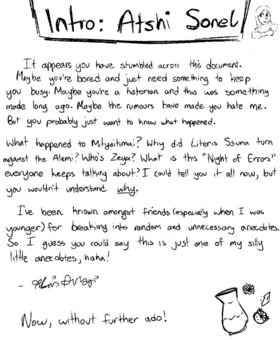 Intro: Atshi Sonel
It appears you have stumbled across this document.
Maybe you're bored and just need something to keep
you busy. Maybe you're a historian and this was something
made long ago. Maybe the rumours have made you hate me.
But you probably just want to know what happened.
What happened to Mtyaithmai? Why did Literis Ssuma turn
against the Alemi? Who's Zeya? What is this "Night of Errors"
everyone keeps talking about? I could tell you it all now, but
you wouldn't understand why.
I've been known amongst friends (especially when I was
younger) for breaking into random and unnecessary anecdotes.
So I guess you could say this is just one of my silly
little anecdotes, haha!
Now, without further ado!